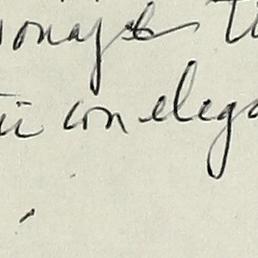 sonajes ti
ii con elega